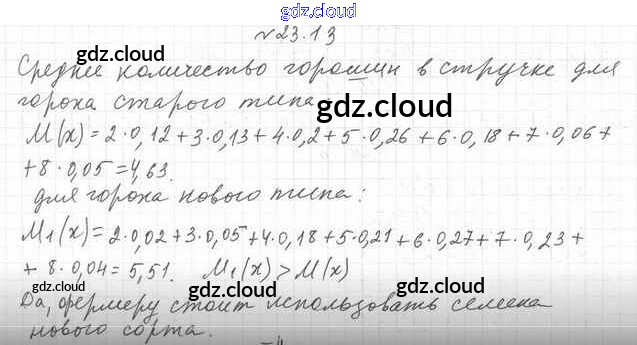 gdz.cloud
№23.13
gdz.cloud
Среднее количество горошин в стручке для
гороха старого типа
gdz.cloud
M(x) = 2·0,12+3·0,13+4·0,2+5·0,26+6·0,18+7·0,06+
+8·0,05=4,63.
gdz.cloud
для гороха нового типа:
M₁(x)=2·0,02+3·0,05+4·0,18+5·0,21+6·0,27+7·0,23+
+8·0,04=5,51. M₁(x)>M(x)
gdz.cloud
gdz.cloud
Да, фермеру стоит использовать семена
нового сорта.
gdz.cloud